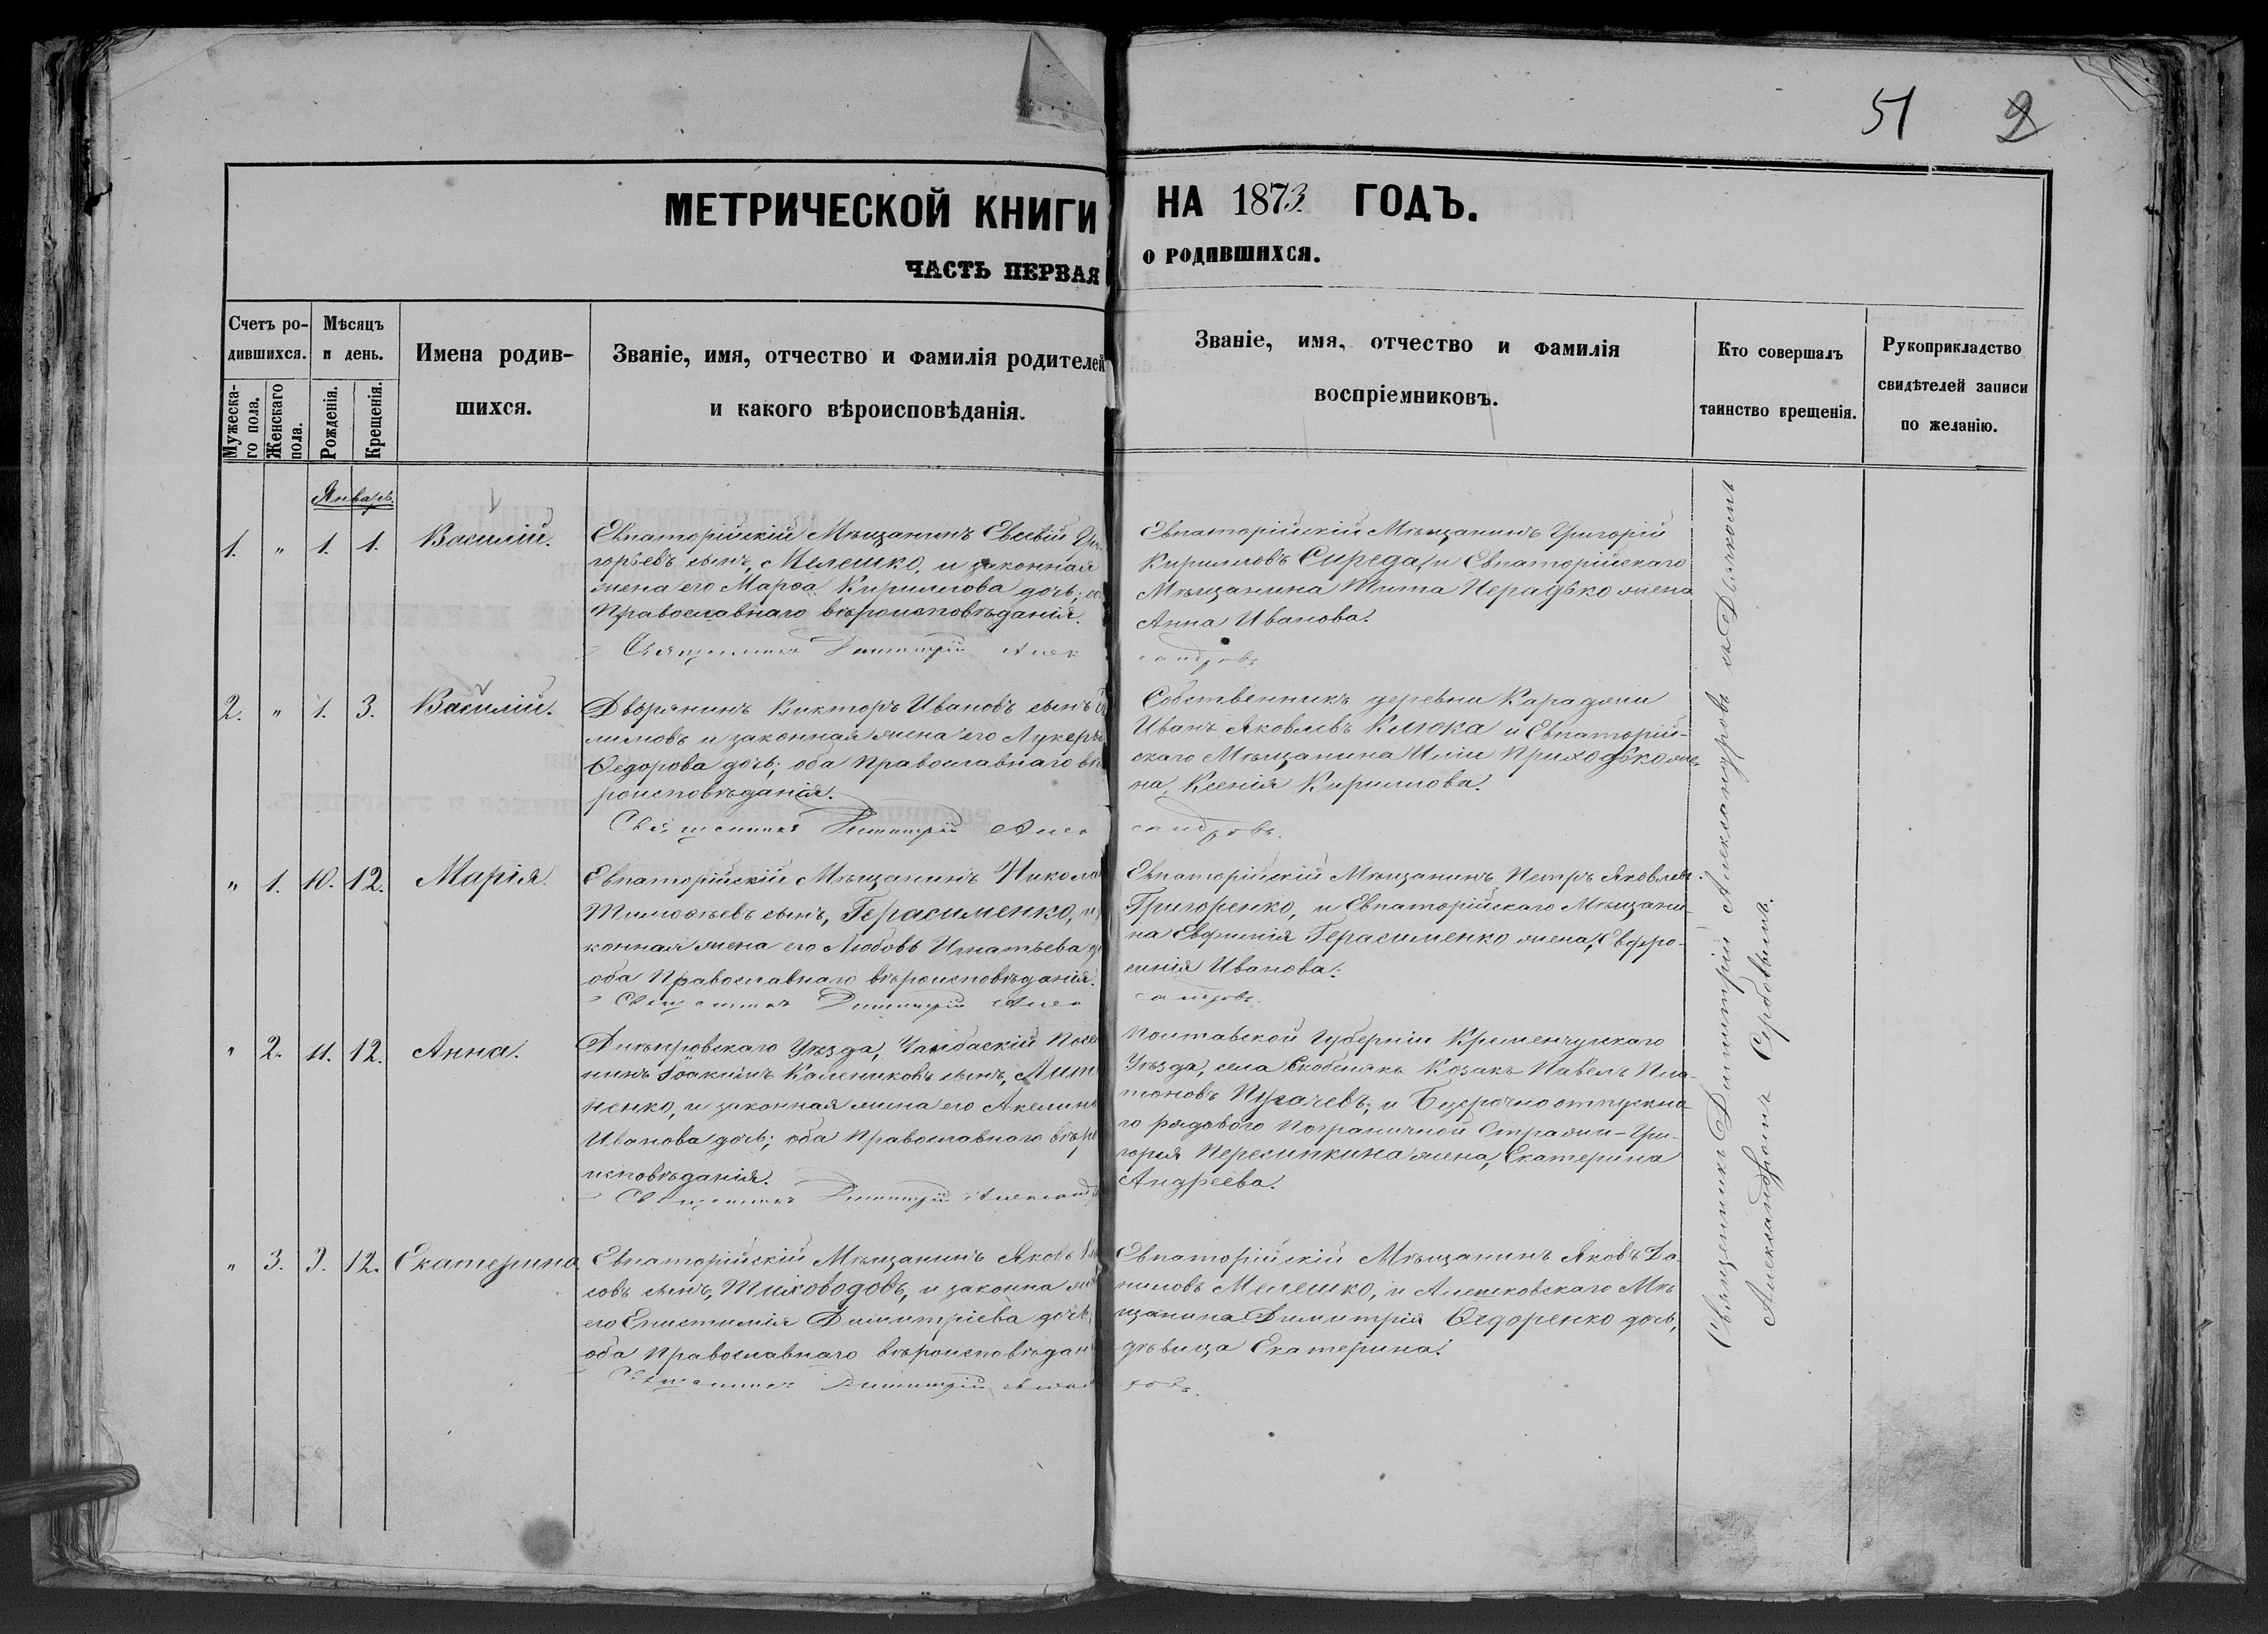 51 2
МЕТРИЧЕСКОЙ КНИГИ НА 1873 ГОДЪ.
ЧАСТЬ ПЕРВАЯ О РОДИВШИХСЯ.
Счетъ ро-
дившихся.
Мужеска-
го пола.
Женскаго
пола.
Мѣсяцъ
и день.
Рожденія.
Крещенія.
Имена родив-
шихся.
Званіе, имя, отчество и фамилія родителей
и какого вѣроисповѣданія.
Званіе, имя, отчество и фамилія
воспріемниковъ.
Кто совершалъ
таинство крещенія.
Рукоприкладство
свидѣтелей записи
по желанію.
Январь.
1. " 1. 1. Василій.
Евпаторійскій Мѣщанинъ Евсевій Гри-
горьевъ сынъ, Мелешко, и законная
жена его Марѳа Кириллова дочь;
Православнаго вѣроисповѣданія.
Священникъ Димитрій Алек
Евпаторійскій Мѣщанинъ Григорій
Кирилловъ Сиреда, и Евпаторійскаго
Мѣщанина Тита Нерадько жена
Анна Иванова.
сандровъ
2. " 1. 3. Василій.
Дворянинъ Викторъ Ивановъ сынъ
лимовъ и законная жена его Лукерья
Ѳедорова дочь; оба Православнаго вѣ
роисповѣданія.
Священникъ Димитрій Алек
Собственникъ деревни Караджи
Иванъ Яковлевъ Клюка и Евпаторій-
скаго Мѣщанина Иліи Приходько же-
на, Ксенія Кириллова.
сандровъ.
" 1. 10. 12. Марія.
Евпаторійскій Мѣщанинъ Никола
Тимоѳѣевъ сынъ, Герасименко, и
конная жена его Любовь Игнатьева
оба Православнаго вѣроисповѣданія.
Священникъ Димитрій Алек
Евпаторійскій Мѣщанинъ Петръ Яковлевъ
Григоренко, и Евпаторійскаго Мѣщани-
на Евфимія Герасименко жена, Евфро-
синія Иванова.
сандровъ.
" 2. 11. 12. Анна.
Днѣпровскаго Уѣзда, Чалбаскій Посел
нинъ Іоакимъ Калениковъ сынъ, Лит
ненко, и законная жена его Акелина
Иванова дочь; оба Православнаго вѣро
исповѣданія.
Священникъ Димитрій Александ
Полтавской Губерніи Кременчугскаго
Уѣзда, села Козакъ Павелъ Пла-
тоновъ Пугачевъ; и Безсрочноотпускна-
го рядового Пограничной Стражи - Гри-
горія Пересипкина жена, Екатерина
Андреева.
" 3. 9. 12. Екатерина
Евпаторійскій Мѣщанинъ Яковъ
совъ сынъ, Тиховодовъ, и законна
его Епистимія Димитріева дочь,
оба Православнаго вѣроисповѣдан
Священникъ Димитрій Алекса
Евпаторійскій Мѣщанинъ Яковъ Да-
ниловъ Мелешко, и Алешковскаго Мѣ-
щанина Димитрія Ѳедоренко дочь,
дѣвица Екатерина.
ровъ.
Священникъ Димитрій Александровъ съ Дьячкомъ
Александромъ Сербовымъ.